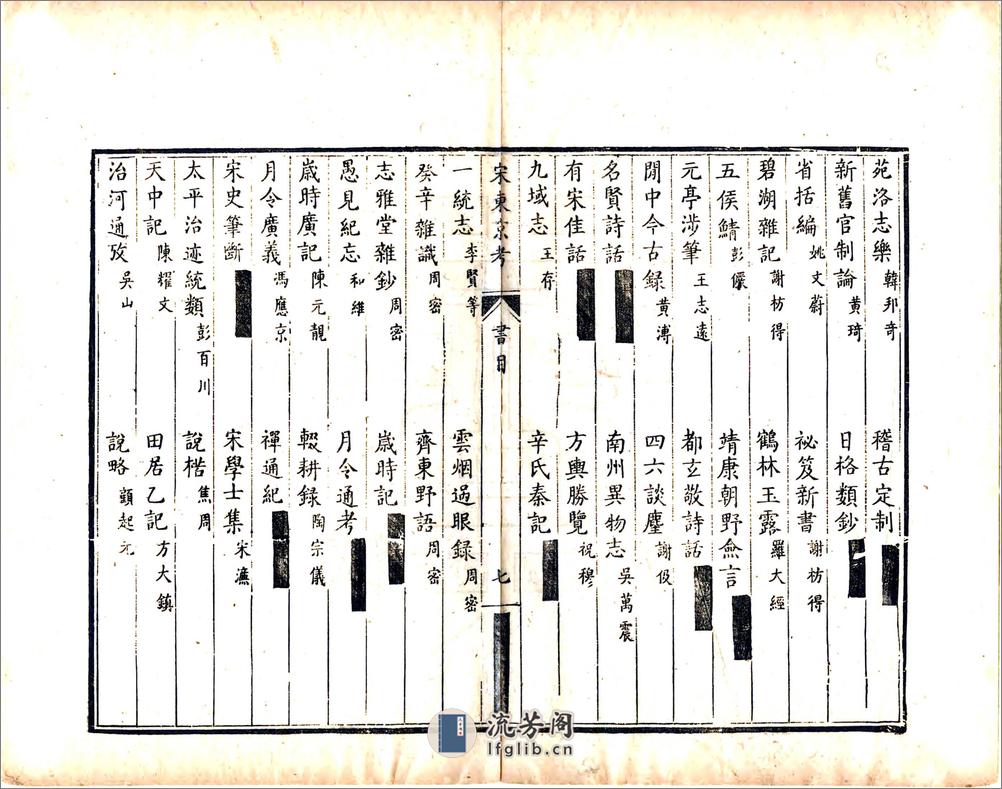 苑洛志樂 韓邦奇 稽古定制
新舊官制論 黃琦 日格類鈔
省括編 姚文蔚 祕笈新書 謝枋得
碧湖雜記 謝枋得 鶴林玉露 羅大經
五侯鯖 彭儼 靖康朝野僉言
元亭涉筆 王志遠 都玄敬詩話
閒中今古録 黃溥 四六談麈 謝伋
名賢詩話 南州異物志 吳萬震
有宋佳話 方輿勝覽 祝穆
九域志 王存 辛氏秦記
宋東京考 書目 七
一統志 李賢等 雲烟過眼録 周密
癸辛雜識 周密 齊東野語 周密
志雅堂雜鈔 周密 歲時記
愚見紀忘 和維 月令通考
歲時廣記 陳元靚 輟耕録 陶宗儀
月令廣義 馮應京 禪通紀
宋史筆斷 宋學士集 宋濂
太平治迹統類 彭百川 說楛 焦周
天中記 陳耀文 田居乙記 方大鎮
治河通攷 吳山 說略 顧起元
流芳阁
lfglib.cn